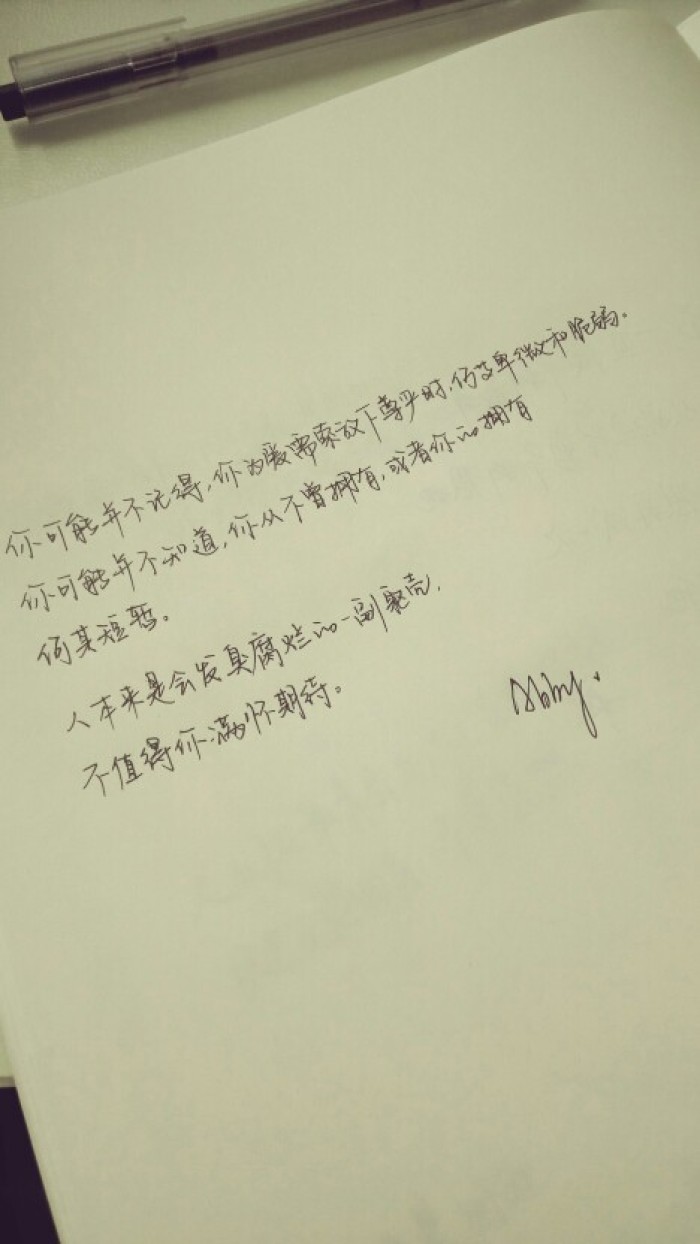 你可能并不记得,你为爱需索放下尊严时,何等卑微和脆弱。
你可能并不知道,你从不曾拥有,或者你的拥有
何其短暂。
人本来是会发臭腐烂的一副躯壳,
不值得你满怀期待。
Abby.